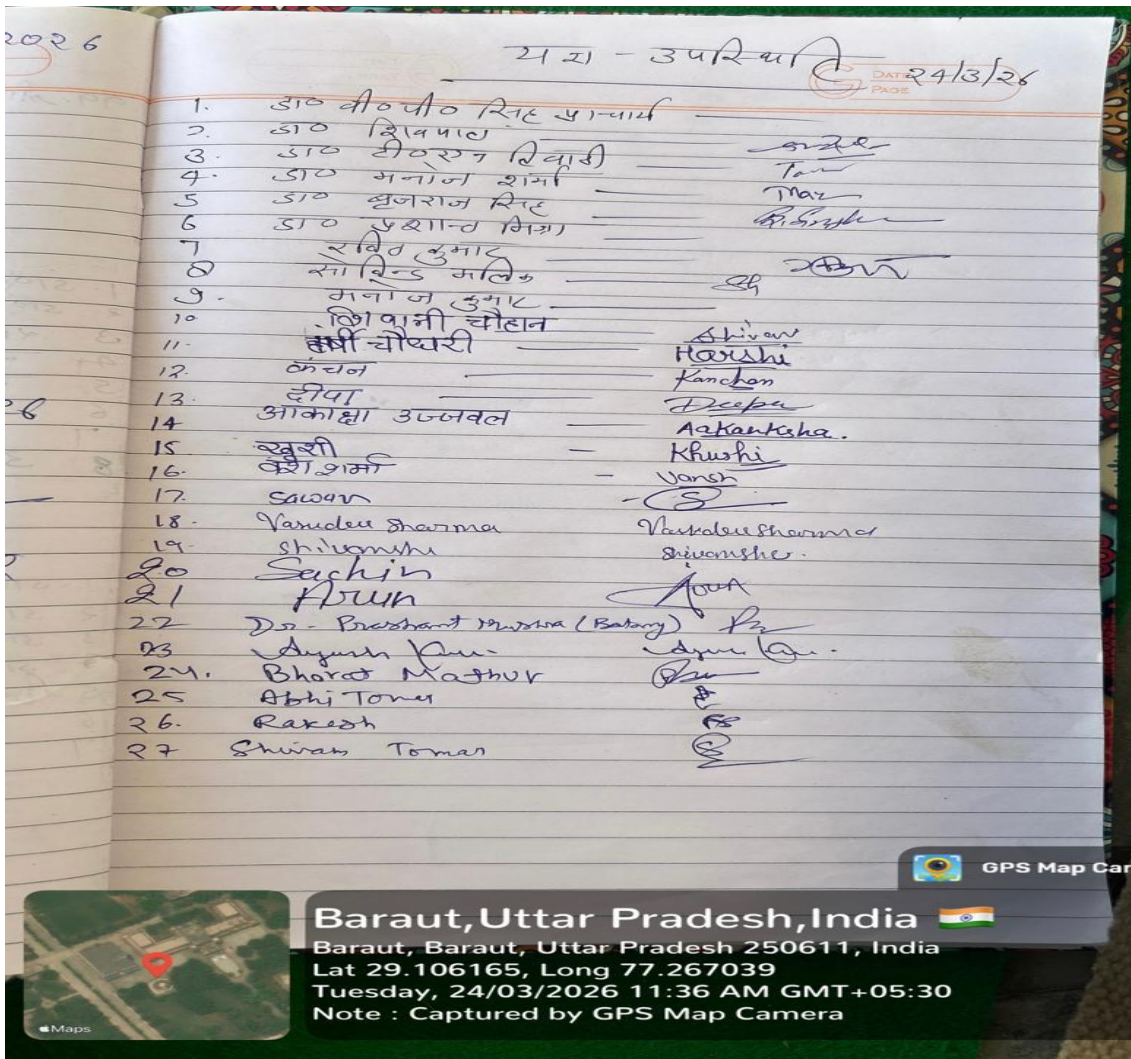 2026
यज्ञ - उपस्थिति
DATE 24/3/26
PAGE
1. डा० वी०पी० सिंह प्राचार्य
2. डा० शिवपाल
3. डा० टी०एन तिवारी
4. डा० मनोज शर्मा
5 डा० बृजराज सिंह
6 डा० प्रशान्त मिश्रा
7 रवित कुमार
8 सोविन्द्र मलिक
9. मनोज कुमार
10 शिवानी चौहान
11. हर्षी चौधरी Harshi
12. कंचन Kanchan
13. दीपा Deepa
14 आकांक्षा उज्जवल Aakanksha.
15 खुशी - Khushi
16. वंश शर्मा - Vansh
17. Sawan
18. Vasudev Sharma Vasudev Sharma
19. Shivanshi Shivanshi.
20 Sachin
21 Arun Arun
22 Dr. Prashant Mishra (Botany)
23 Ayush
24. Bharat Mathur
25 Abhi Tomer
26. Rakesh
27 Shivam Tomar
GPS Map Car
Baraut,Uttar Pradesh,India
Baraut, Baraut, Uttar Pradesh 250611, India
Lat 29.106165, Long 77.267039
Tuesday, 24/03/2026 11:36 AM GMT+05:30
Note : Captured by GPS Map Camera
Maps